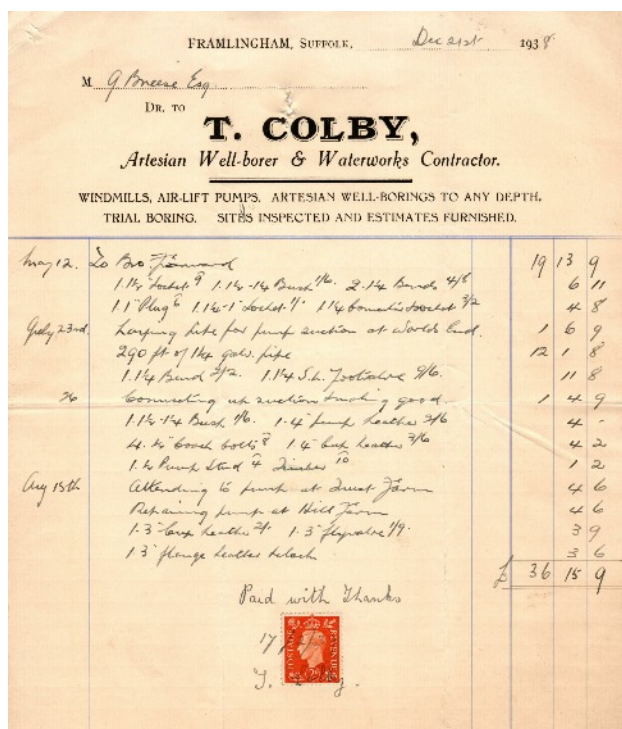 FRAMLINGHAM, SUFFOLK, Dec 21st 1938
M G Breese Esq
DR. TO
T. COLBY,
Artesian Well-borer & Waterworks Contractor.
WINDMILLS, AIR-LIFT PUMPS. ARTESIAN WELL-BORINGS TO ANY DEPTH.
TRIAL BORING. SITES INSPECTED AND ESTIMATES FURNISHED.
May 12. To Bro. Forward 19 13 9
Socket 1.1½-1¼ Bush 1/6. 2-1¼ Bends 4/8 6 11
1.1" Plug 6 1.1¼-1" Socket 1/- 1 1¼ Socket 3/2 4 8
July 23rd. pipe for pump suction at Worlds End. 1 6 9
290 ft of 1¼ galv. pipe 12 1 8
1.1¼ Bend 2/2. 1.1¼ 9/6. 11 8
26 Connecting up suction & making good. 1 4 9
1.1½-1¼ Bush 1/6. 1-4" pump leather 2/6 4 -
Coach bolts 8 1 4" Cup leather 3/6 4 2
Pump Stud 4 Timber 10 1 2
Aug 15th Attending to pump at Trust Farm 4 6
Repairing pump at Hill Farm 4 6
1-3" Cup leather 2/- 1-3" flyvalve 1/9. 3 9
1 3" flange leather 3 6
£ 36 15 9
Paid with Thanks
17
POSTAGE REVENUE
T. Colby.